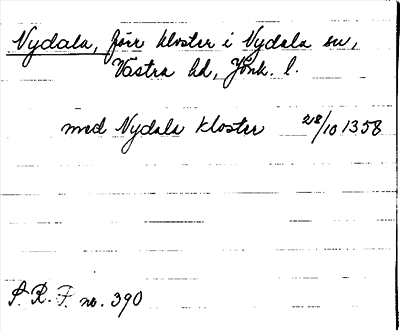 Nydala, förr kloster i Nydala sn,
Västra hd, Jönk. l.
med Nydala kloster 28/10 1358
S. R. F. no. 390